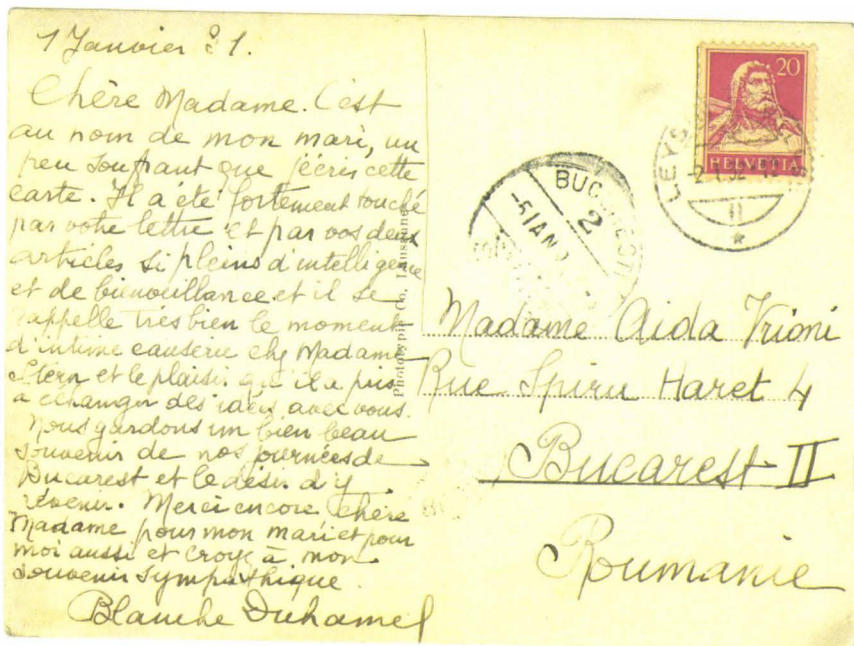 1 Janvier 31.
Chère Madame. C'est
au nom de mon mari, un
peu souffrant que j'écris cette
carte. Il a été fortement touché
par votre lettre et par vos deux
articles si pleins d'intelligence
et de bienveillance et il se
rappelle très bien le moment
d'intime causerie chez Madame
Stern et le plaisir qu'il a pris
à échanger des idées avec vous.
Nous gardons un bien beau
souvenir de nos journées de
Bucarest et le désir d'y
revenir. Merci encore chère
Madame pour mon mari et pour
moi aussi et croyez à mon
souvenir sympathique.
Blanche Duhamel
Phototypie Co. Lausanne
20
HELVETIA
LEYS
II
BUC
2
Madame Aida Vrioni
Rue Spiru Haret 4
Bucarest II
Roumanie